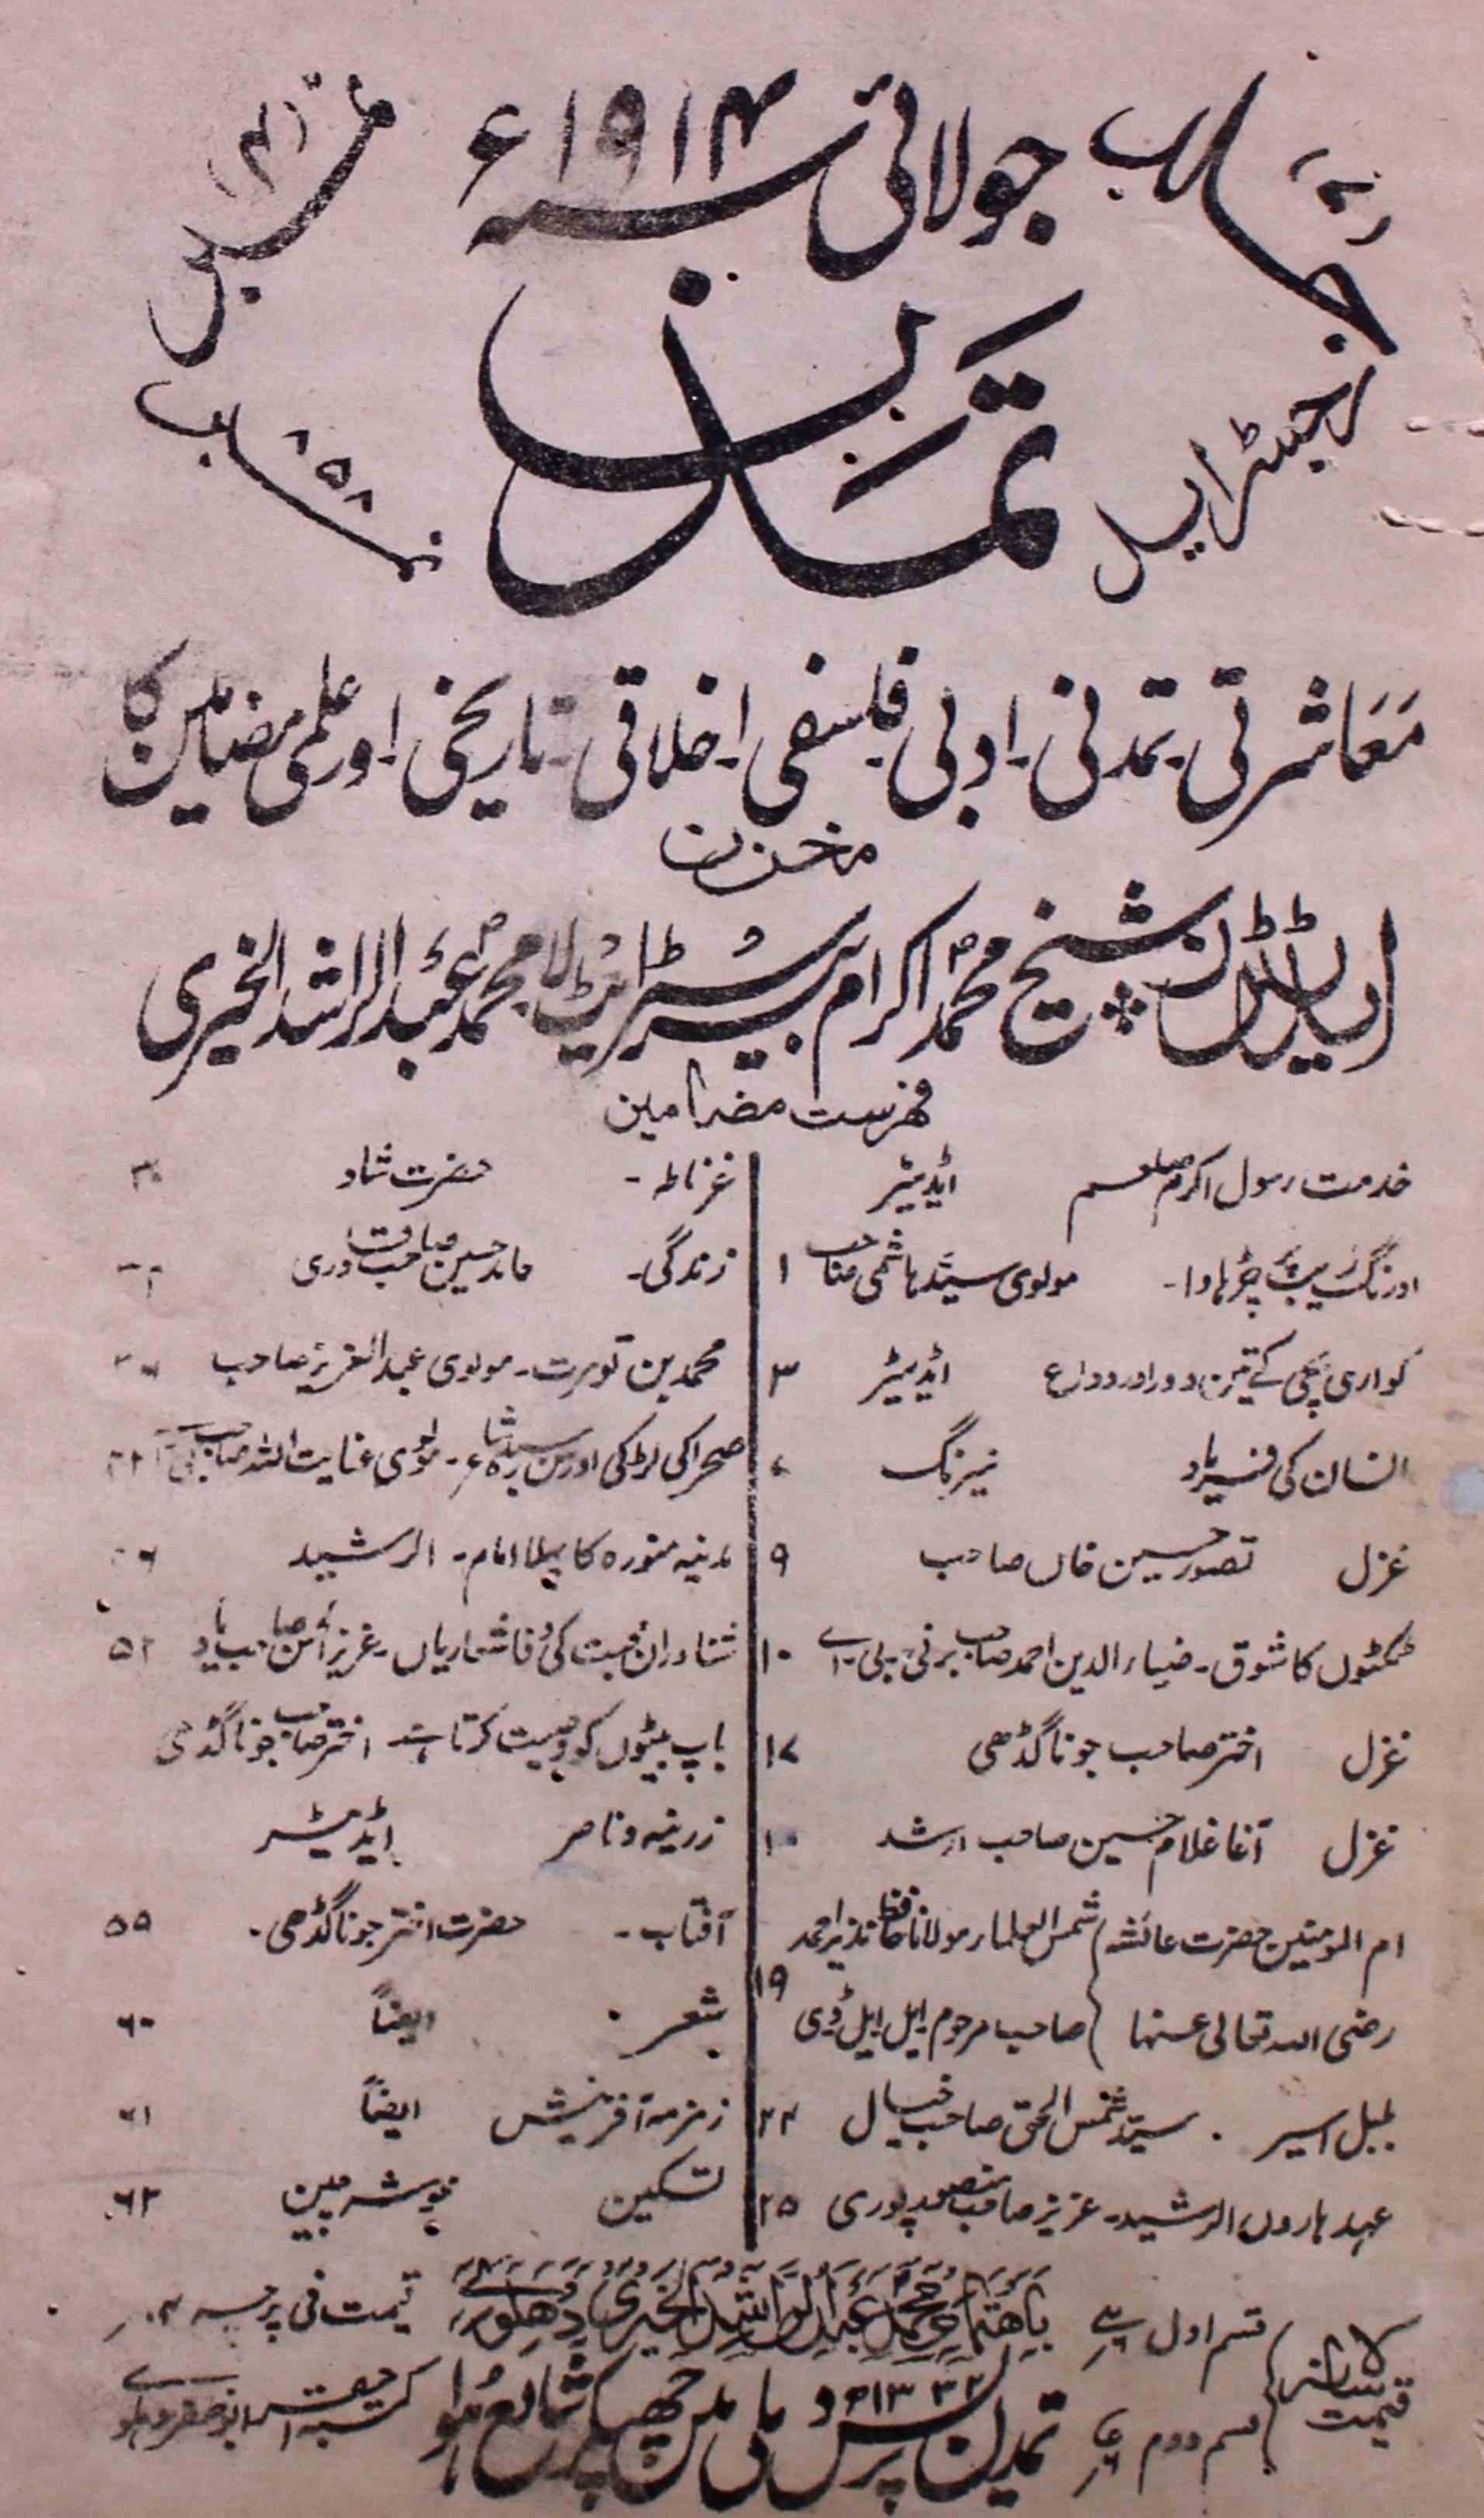 جلد
جولائی سنہ ۱۹۱۴ء
نمبر
رجسٹرڈ ایل
تمدّن
نمبر ۸۵۸
معاشرتی۔ تمدنی۔ ادبی فلسفی۔ اخلاقی۔ تاریخی۔ اور علمی مضامین کا
مخزن
شیخ محمد اکرام بیرسٹر ایٹ لا محمد عبد الراشد الخیری
فہرست مضامین
خدمت رسول اکرم صلعم ایڈیٹر
اورنگ زیب پر چڑہاوا۔ مولوی سید ہاشمی صاحب ۱
کواری بچی کے تین دور اور وداع ایڈیٹر ۳
انسان کی فریاد نیرنگ
غزل تصور حسین خاں صاحب ۹
ٹکٹوں کا شوق۔ ضیاء الدین احمد صاحب برنی۔ بی۔ اے ۱۰
غزل اختر صاحب جوناگڈھی ۱۷
غزل آغا غلام حسین صاحب ارشد
ام المومنین حضرت عائشہ شمس العلماء مولانا حافظ نذیر احمد
رضی اللہ تعالی عنہا صاحب مرحوم ایل ایل ڈی ۱۹
بلبل اسیر۔ سید شمس الحق صاحب خیال ۲۴
عہد ہارون الرشید۔ عزیز صاحب منصور پوری ۲۵
غرناطہ۔ حضرت شاد ۳۰
زندگی۔ حامد حسین صاحب قادری
محمد بن تومرت۔ مولوی عبد العزیز صاحب
صحرا کی لڑکی اور۔ مولوی عنایت اللہ صاحب بی اے
مدینہ منورہ کا پہلا امام۔ الرشید
شناوران محبت کی وفا شعاریاں۔ عزیز صاحب ۵۲
باپ بیٹوں کو وصیت کرتا ہے۔ اختر صاحب جوناگڈھی
زرینہ و ناصر ایڈیٹر
آفتاب۔ حضرت اختر جوناگڈھی۔ ۵۹
شعر۔ ایضاً ۶۰
زمزمہ آفرینش ایضاً ۶۱
تسکین ۶۲
قیمت سالانہ
قسم اول
قسم دوم
باہتمام محمد عبد الراشد الخیری دھلوی
قیمت فی پرچہ
۱۳۳۲
تمدن پریس دہلی میں چھپکر شائع ہوا